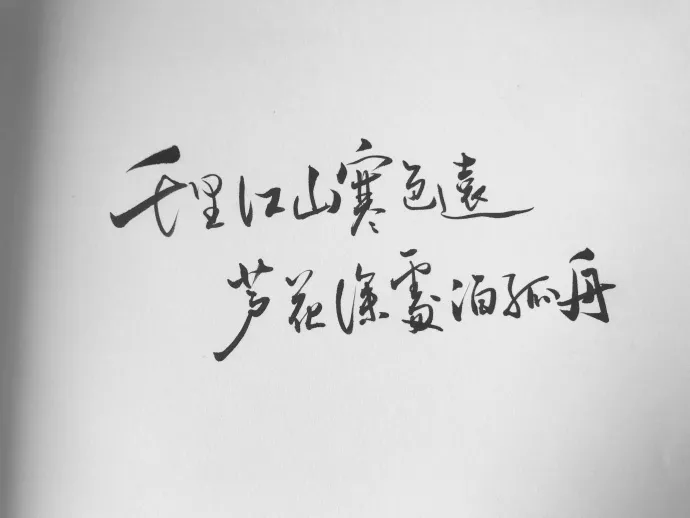 千里江山寒色遠
芦花深處泊孤舟